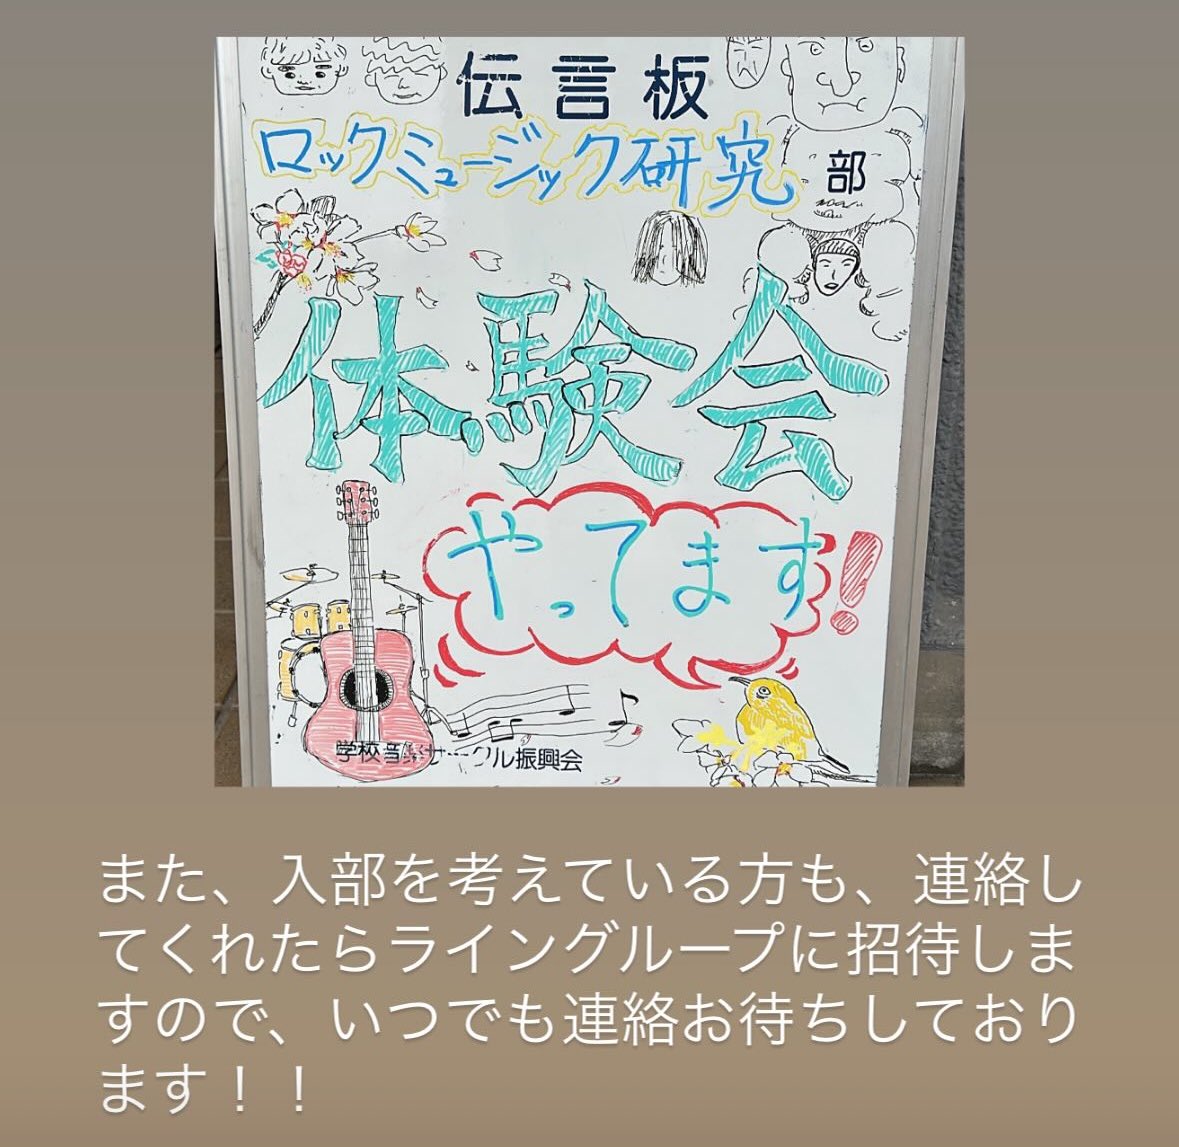 伝言板
ロックミュージック研究部
体験会
やってます!
学校音楽サークル振興会
また、入部を考えている方も、連絡し
てくれたらライングループに招待しま
すので、いつでも連絡お待ちしており
ます！！